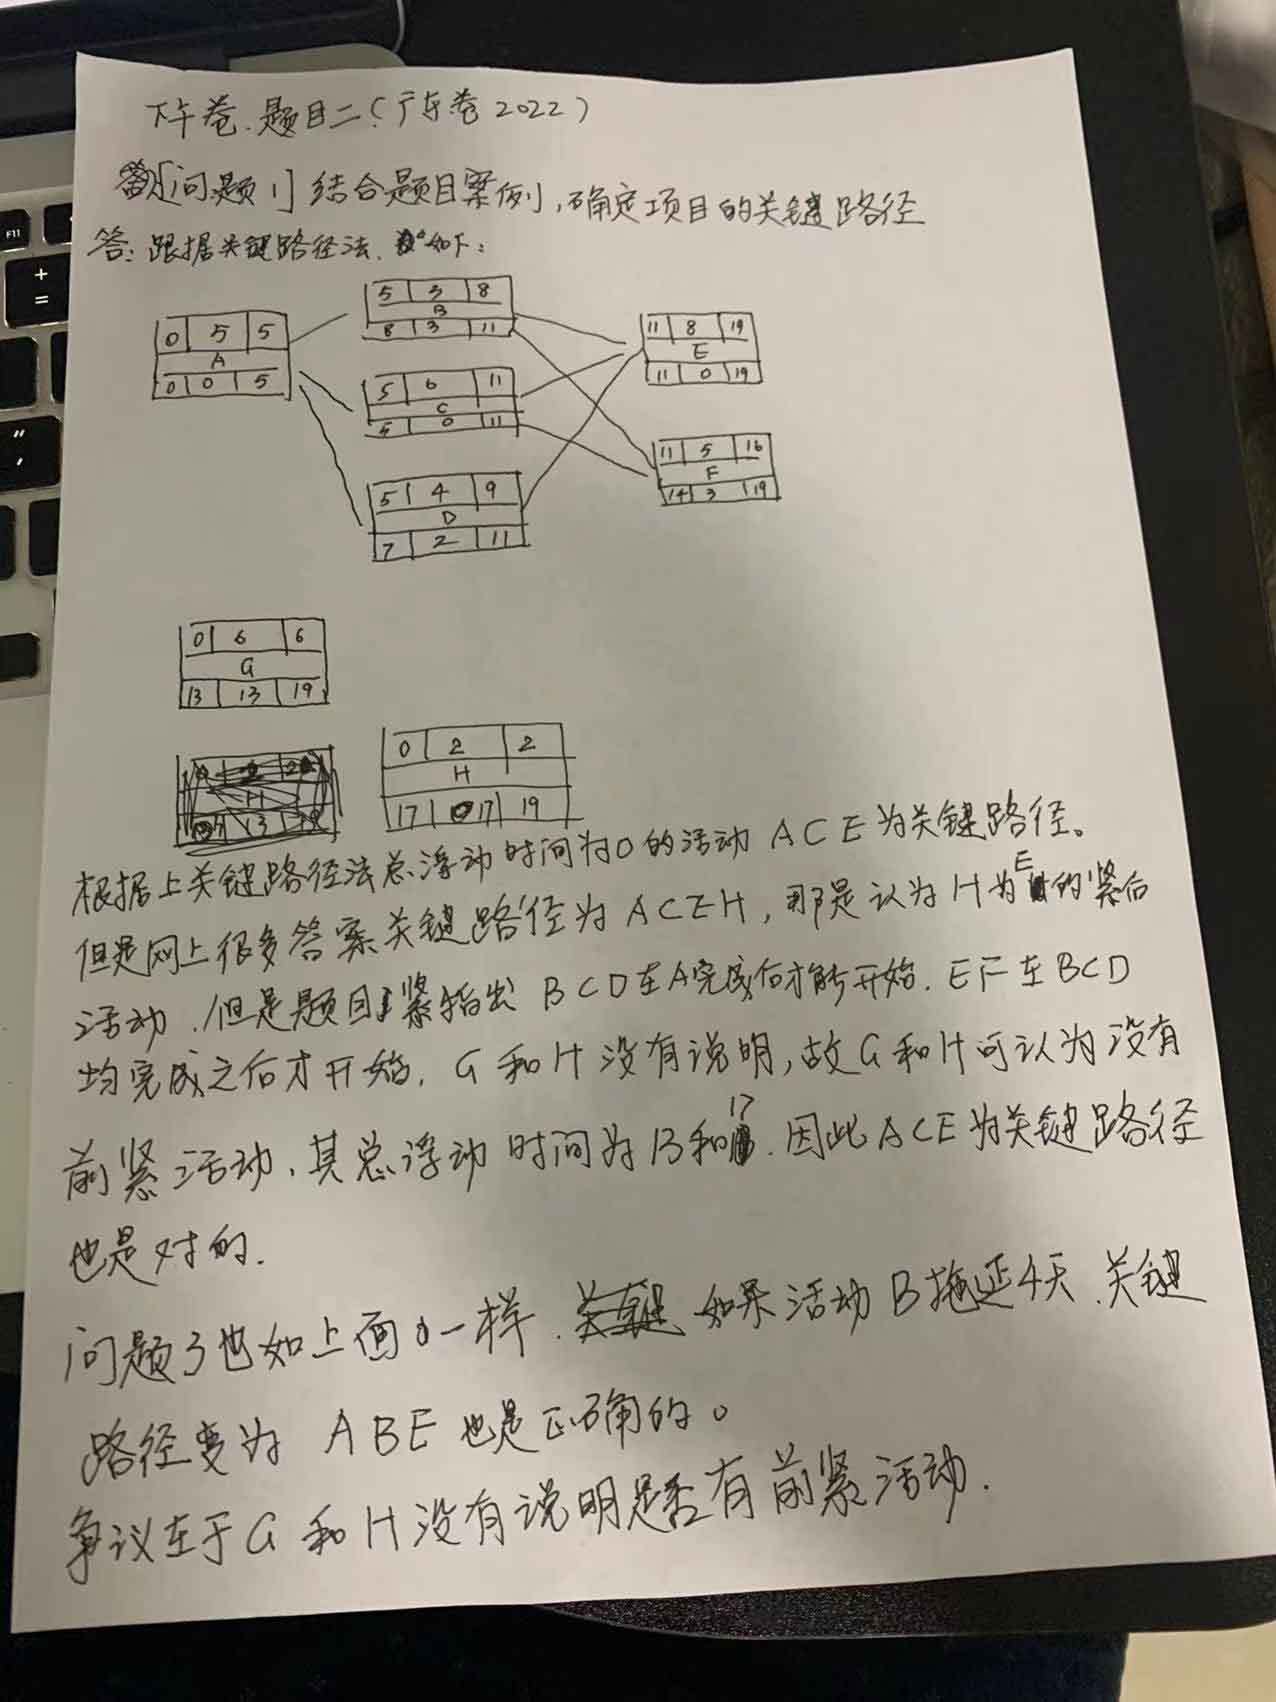 下午卷.题目二(广东卷2022)
[问题1]结合题目案例,确定项目的关键路径
答:跟据关键路径法.如下:
5 3 8
B
8 3 11
0 5 5
A
0 0 5
11 8 19
E
11 0 19
5 6 11
C
5 0 11
11 5 16
F
14 3 19
5 4 9
D
7 2 11
0 6 6
G
13 13 19
0 2 2
H
17 17 19
根据上关键路径法总浮动时间为0的活动ACE为关键路径。
但是网上很多答案关键路径为ACEH,那是认为H为E的紧后
活动.但是题目紧指出BCD在A完成后才能开始.EF在BCD
均完成之后才开始.G和H没有说明,故G和H可认为没有
前紧活动.其总浮动时间为13和17.因此ACE为关键路径
也是对的.
问题3也如上面一样.如果活动B拖延4天.关键
路径变为ABE也是正确的。
争议在于G和H没有说明是否有前紧活动.
F11
+
=
"
,